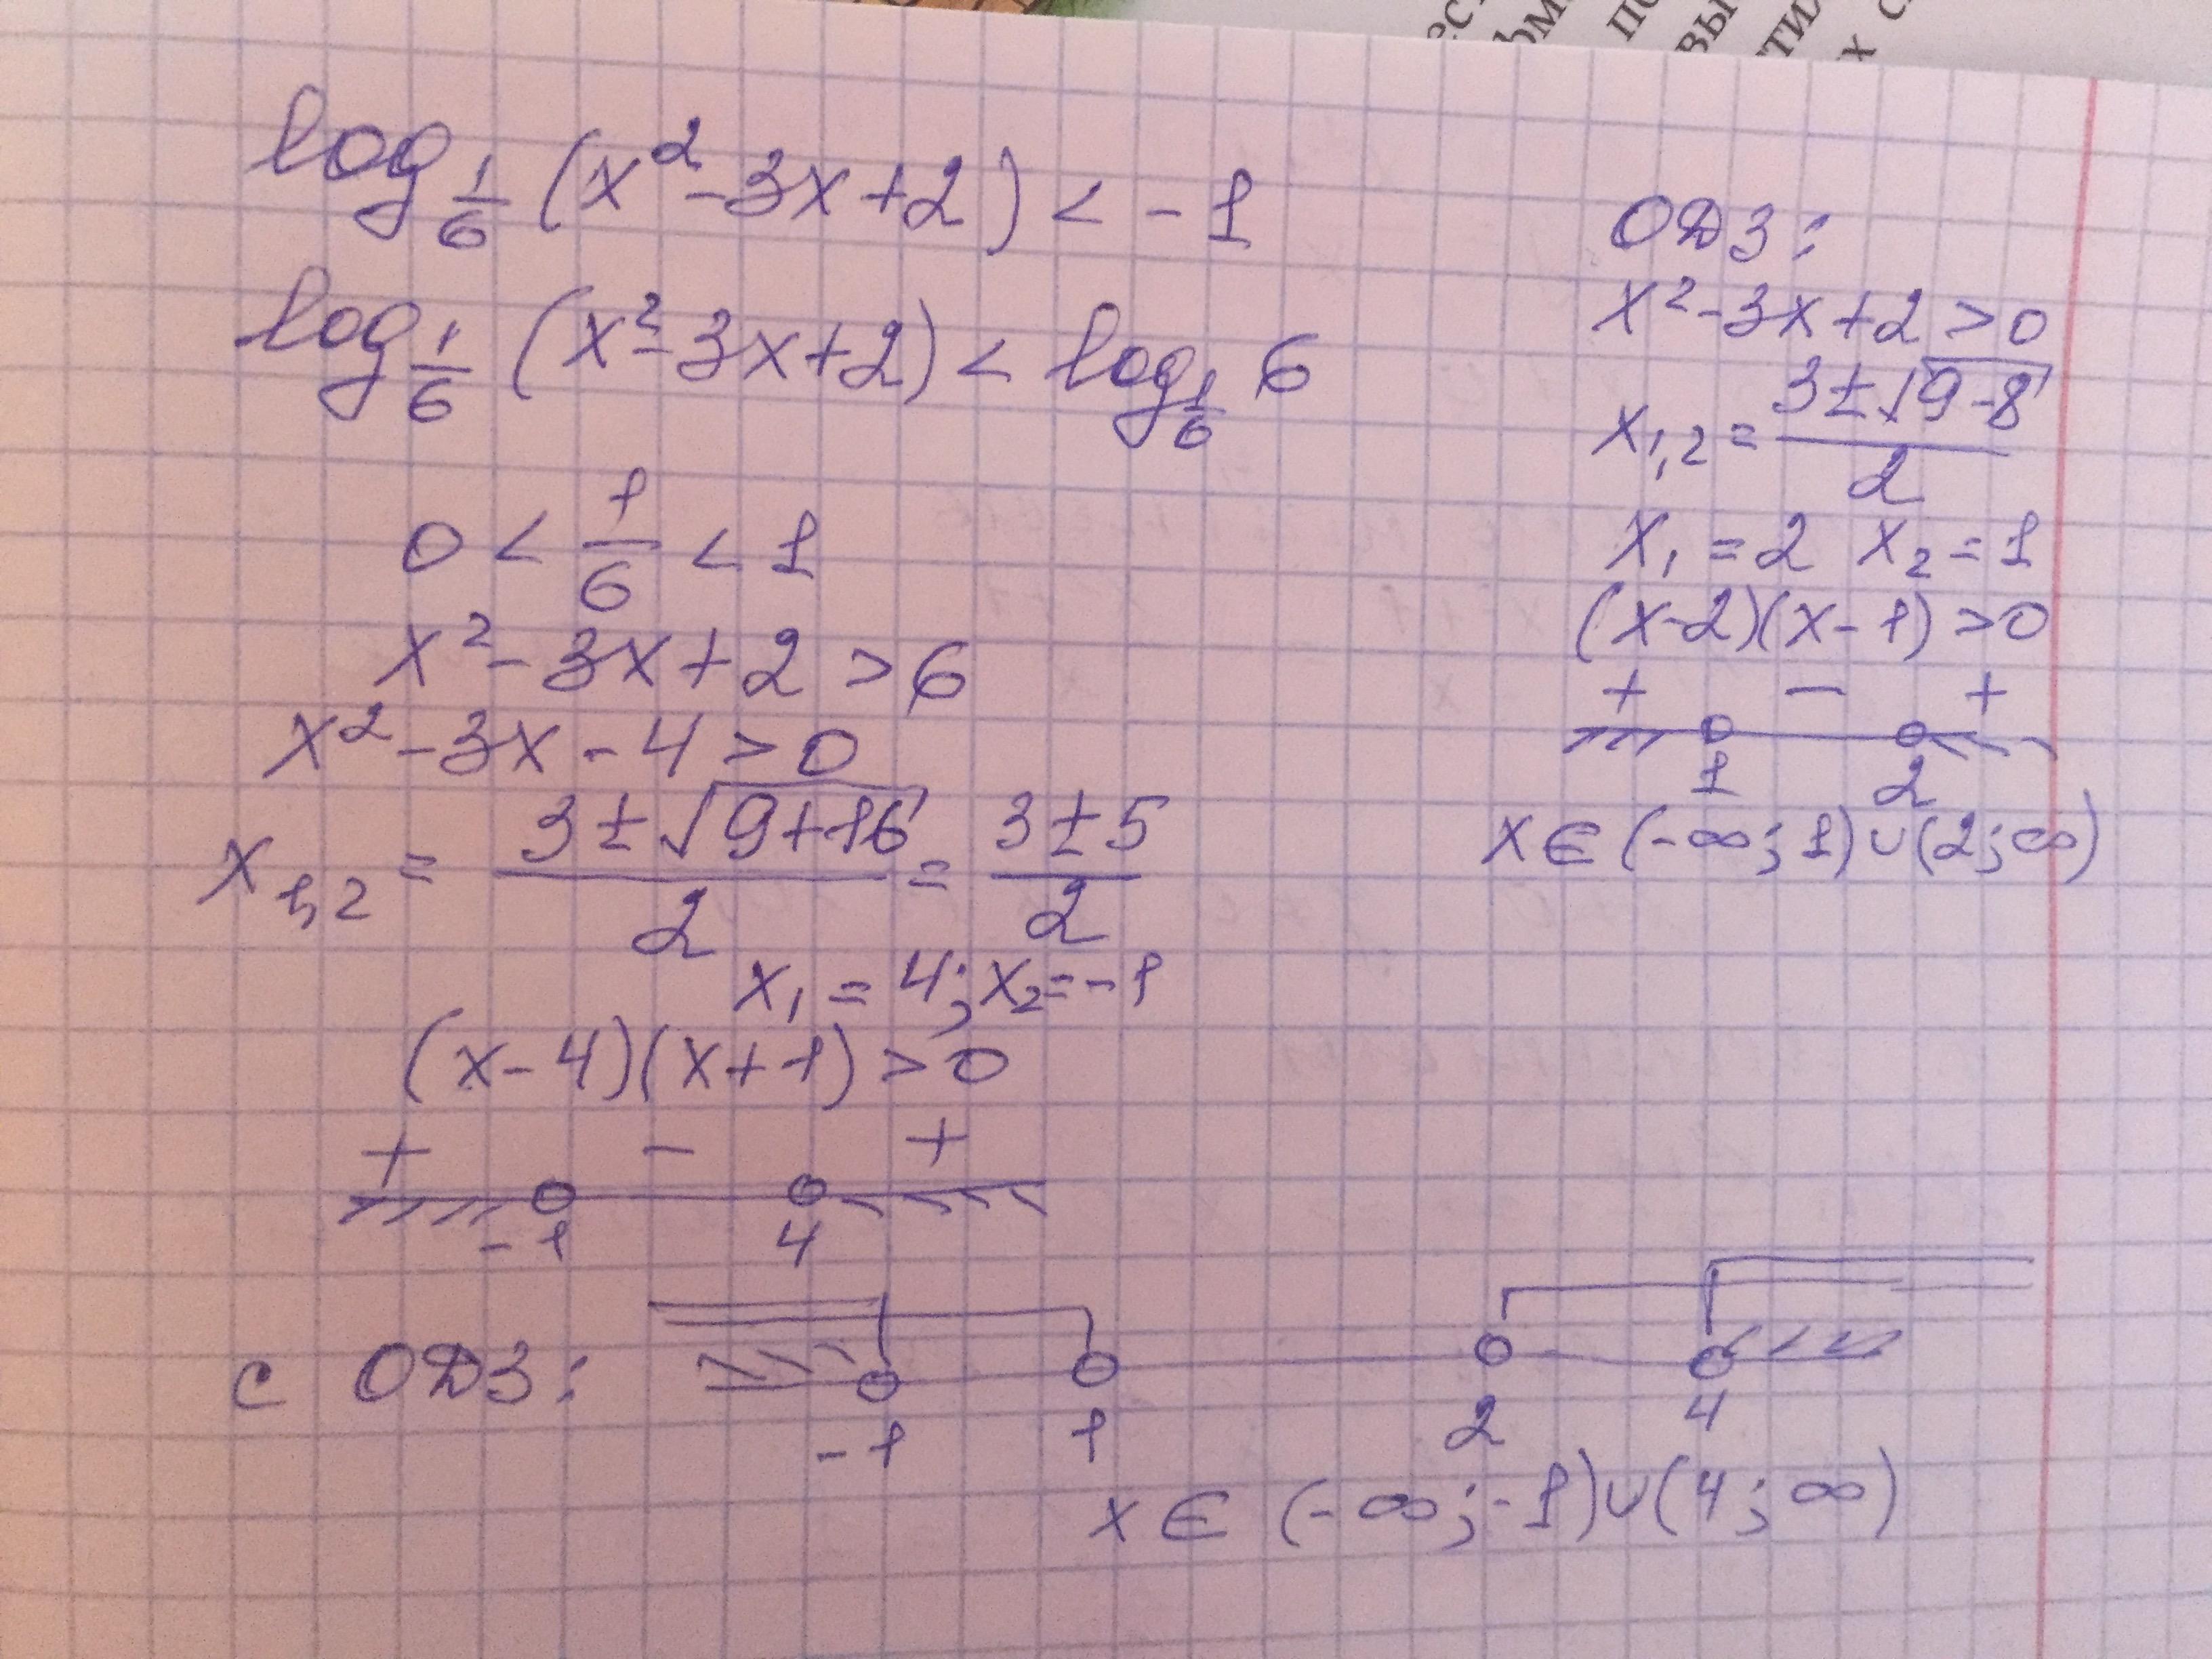 log_{1/6} (x² - 3x + 2) < -1
log_{1/6} (x² - 3x + 2) < log_{1/6} 6
0 < 1/6 < 1
x² - 3x + 2 > 6
x² - 3x - 4 > 0
x_{1,2} = (3 ± √(9+16))/2 = (3 ± 5)/2
x₁ = 4; x₂ = -1
(x - 4)(x + 1) > 0
+ - +
-1 4
ОДЗ:
x² - 3x + 2 > 0
x_{1,2} = (3 ± √(9-8))/2
x₁ = 2 x₂ = 1
(x-2)(x-1) > 0
+ - +
1 2
x ∈ (-∞; 1) ∪ (2; ∞)
с ОДЗ:
-1 1 2 4
x ∈ (-∞; -1) ∪ (4; ∞)